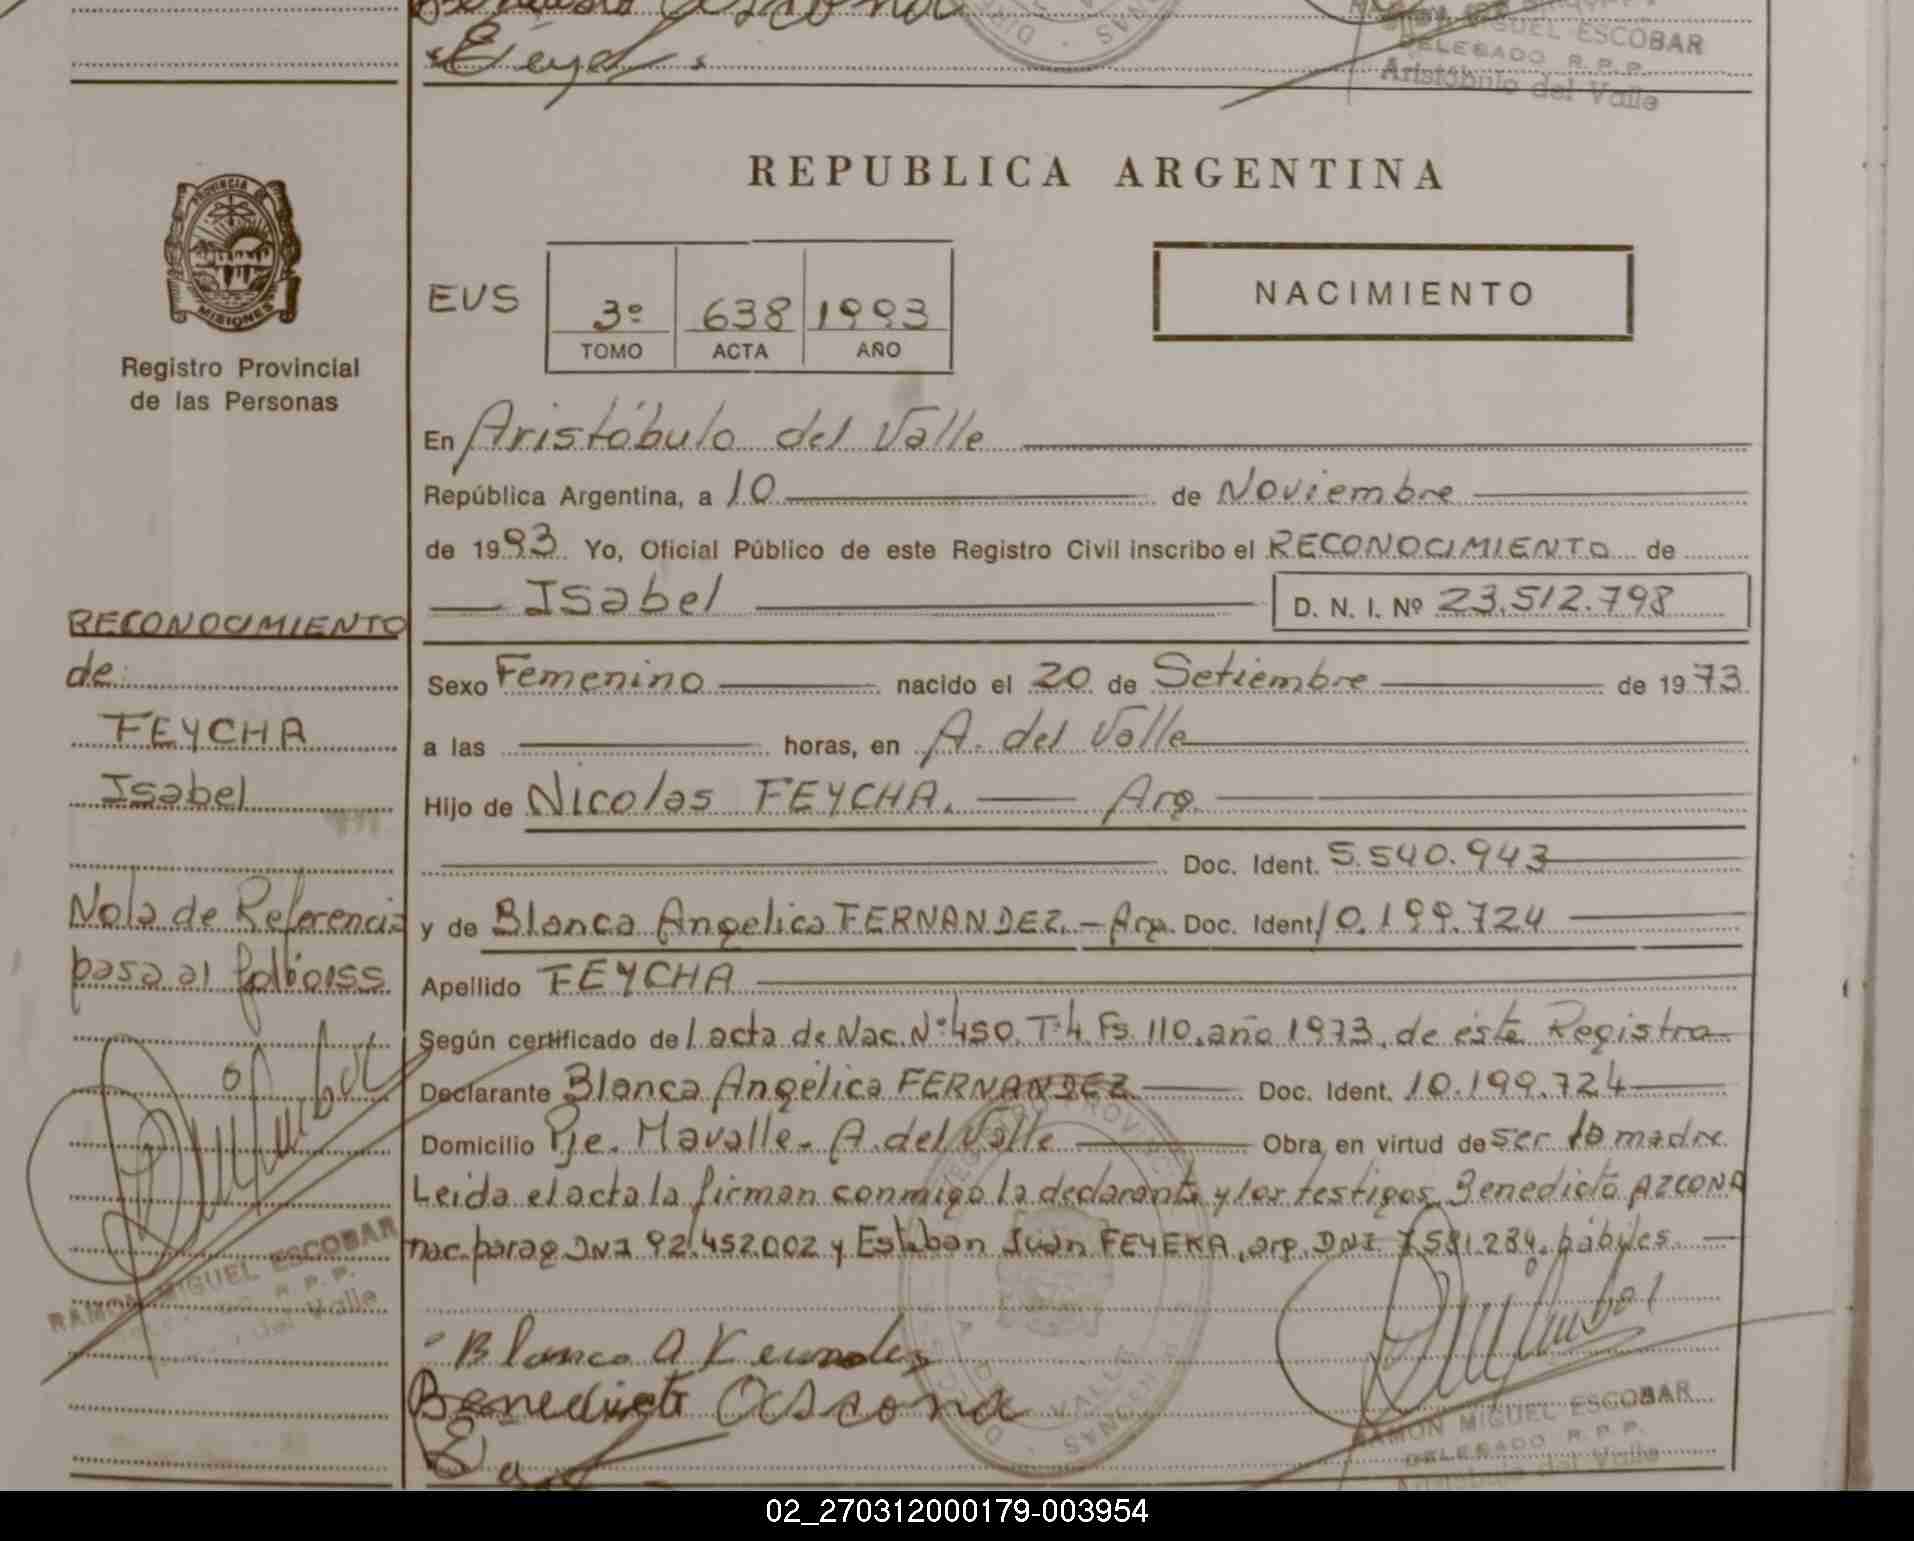 Benedicto Ascona
MIGUEL ESCOBAR
DELEGADO R.P.P.
Aristóbulo del Valle
PROVINCIA
MISIONES
Registro Provincial
de las Personas
REPUBLICA ARGENTINA
EUS
3º 638 1993
TOMO ACTA AÑO
NACIMIENTO
En Aristóbulo del Valle
República Argentina, a 10 de Noviembre
de 1993. Yo, Oficial Público de este Registro Civil inscribo el RECONOCIMIENTO de
Isabel D. N. I. Nº 23.512.798
RECONOCIMIENTO
de:
FEYCHA
Isabel
Nota de Referencia
pasa al folio 155
RAMON MIGUEL ESCOBAR
R. P. P.
del Valle
Sexo Femenino nacido el 20 de Setiembre de 1973
a las horas, en A. del Valle
Hijo de Nicolas FEYCHA. Arg.
Doc. Ident. 5.540.943
y de Blanca Angelica FERNANDEZ.- Arg. Doc. Ident. 10.199.724
Apellido FEYCHA
Según certificado de l acta de Nac. Nº 450. T:4. Fs. 110. año 1973. de éste Registro
Declarante Blanca Angélica FERNANDEZ Doc. Ident. 10.199.724
Domicilio Pje. Mavalle - A. del Valle Obra en virtud de ser la madre.
Leida el acta la firman conmigo la declarante y los testigos Benedicto AZCONA
nac. parag DNI 92.452.002 y Esteban Juan FEYEKA, arg. DNI 7.581.284. hábiles.
Blanca A Fernandez
Benedicto Ascona
RAMON MIGUEL ESCOBAR
DELEGADO R. P. P.
Aristóbulo del Valle
02_270312000179-003954